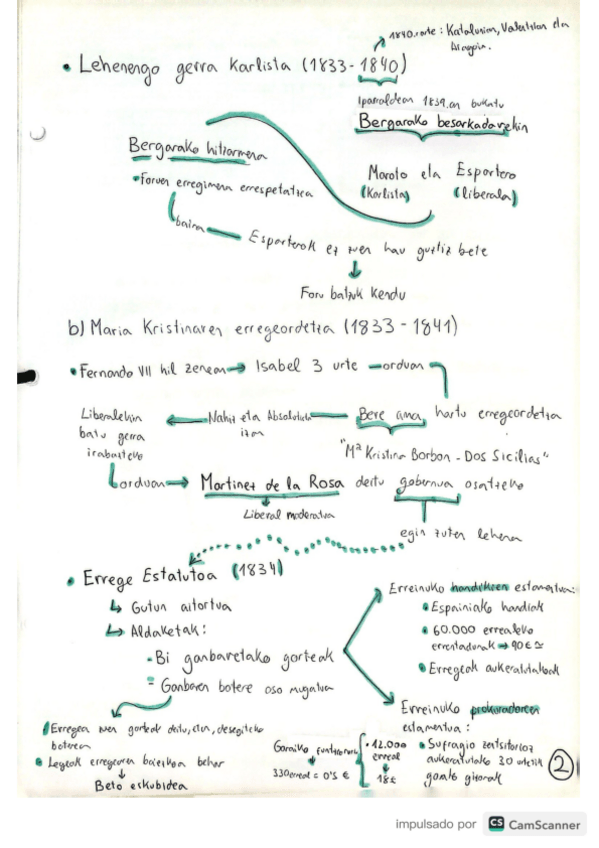 1840.arte : Katalunian, Valentzian eta
Aragoin.
• Lehenengo gerra Karlista (1833-1840)
Iparraldean 1839.an bukatu
Bergarako besarkadarekin
Bergarako hitzarmena
Maroto eta Espartero
• Foruen erregimena errespetatzea
(Karlista) (liberala)
baina Esparterok ez zuen hau guztiz bete
Foru batzuk kendu
b) Maria Kristinaren erregeordetza (1833-1841)
• Fernando VII hil zenean → Isabel 3 urte orduan
Liberalekin ← Nahiz eta Absolutista Bere ama, hartu erregeordetza
batu gerra izan
irabazteko "Mª Kristina Borbon-Dos Sicilias"
orduan → Martinez de la Rosa deitu gobernua osatzeko
Liberal moderatua
egin zuten lehena
• Errege Estatutoa (1834)
Erreinuko handikien estamentua:
↳ Gutun aitortua
• Espainiako handiak
↳ Aldaketak:
• 60.000 errealeko
errentadunak → 90€
- Bi ganbaretako gorteak
• Erregeak aukeratutakoak
- Ganbaren botere oso mugatua
Erreinuko prokuradoreen
estamentua:
Erregea zuen gorteak deitu, eten, desegiteko
boterea
Goraiko funtzionarioak
• 12.000 erreal
↓
18€
• Sufragio zentsitarioz
aukeratutako 30 urtetik
gorako gizonak
• Legeak erregearen baiezkoa behar
330 erreal = 0'5 €
↓
Beto eskubidea
2
impulsado por CS CamScanner